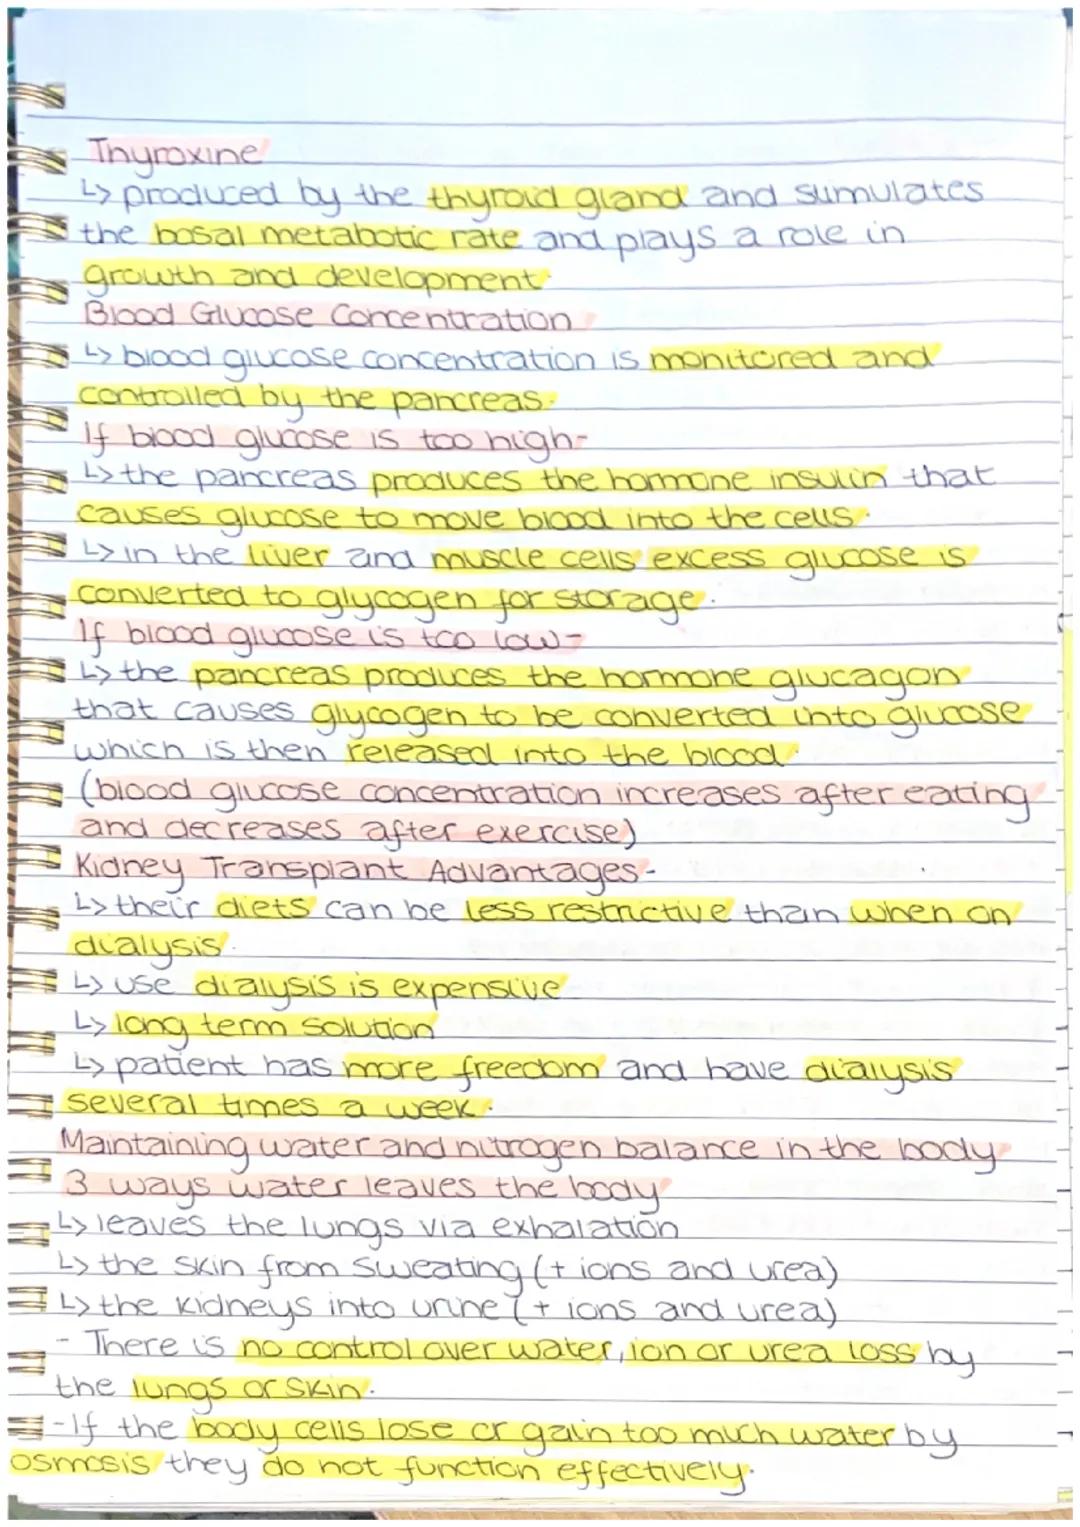 Thyroxine
↳ produced by the thyroid gland and stimulates
the basal metabolic rate and plays a role in
growth and development.
Blood Glucose Concentration
↳ blood glucose concentration is monitored and
controlled by the pancreas.
If blood glucose is too high-
↳ the pancreas produces the hormone insulin that
causes glucose to move blood into the cells.
↳ in the liver and muscle cells excess glucose is
converted to glycogen for storage.
If blood glucose is too low-
↳ the pancreas produces the hormone glucagon
that causes glycogen to be converted into glucose
which is then released into the blood.
(blood glucose concentration increases after eating
and decreases after exercise)
Kidney Transplant Advantages-
↳ their diets can be less restrictive than when on
dialysis.
↳ use dialysis is expensive
↳ long term solution
↳ patient has more freedom and have dialysis
several times a week.
Maintaining water and nitrogen balance in the body
3 ways water leaves the body
↳ leaves the lungs via exhalation
↳ the skin from sweating (+ ions and urea)
↳ the kidneys into urine (+ ions and urea)
- There is no control over water, ion or urea loss by
the lungs or skin.
- If the body cells lose or gain too much water by
osmosis they do not function effectively.